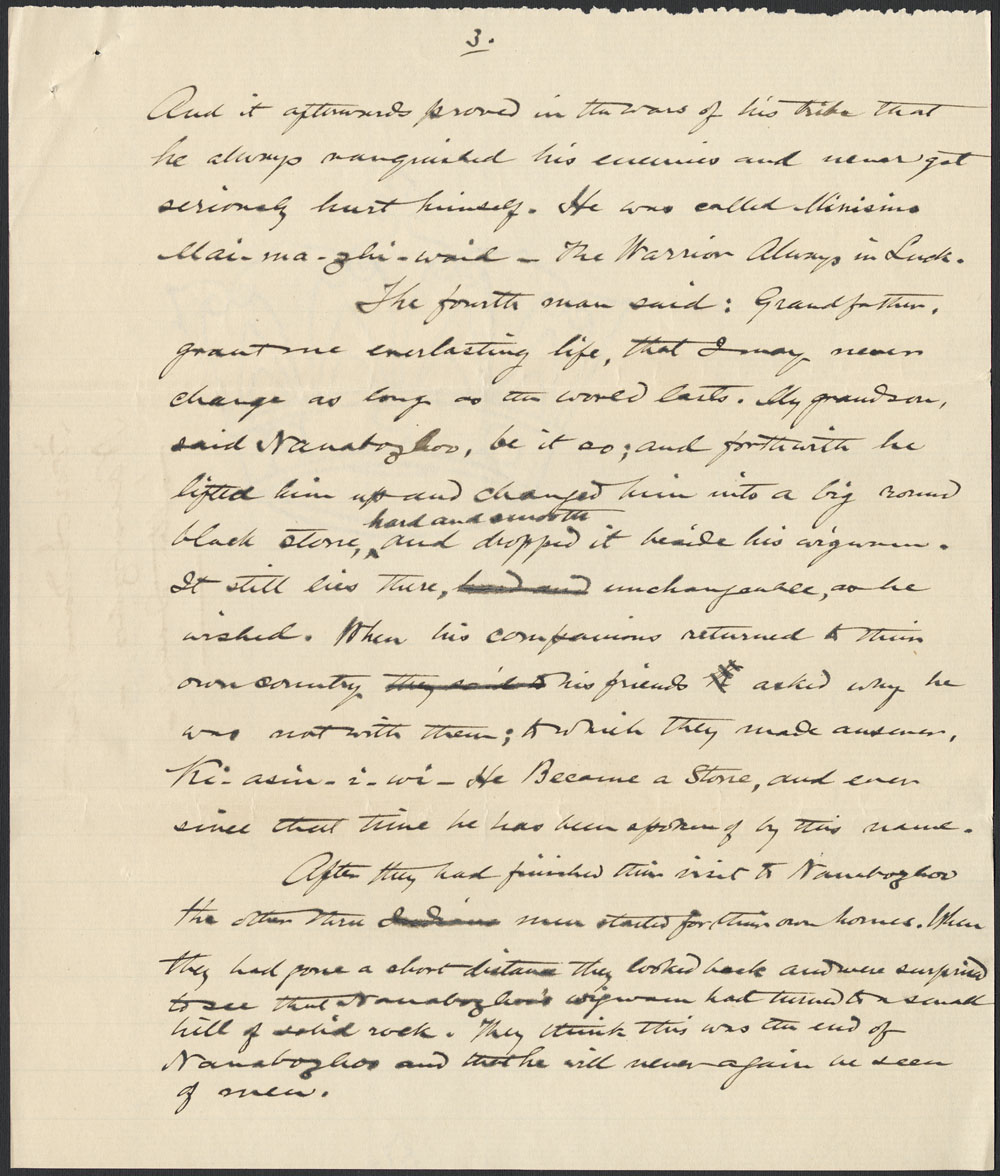 3.
And it afterwards proved in the wars of his tribe that
he always vanquished his enemies and never got
seriously hurt himself. He was called Minisino
Mai-ma-zhi-waid - The Warrior Always in Luck.
The fourth man said: Grandfather,
grant me everlasting life, that I may never
change as long as the world lasts. My grandson,
said Nanabozhoo, be it so; and forthwith he
lifted him up and changed him into a big round
hard and smooth
black stone, and dropped it beside his wigwam.
It still lies there, hard and unchangeable, as he
wished. When his companions returned to their
own country they said to his friends asked why he
was not with them; to which they made answer,
Ki-asin-i-wi - He Became a Stone, and ever
since that time he has been spoken of by this name.
After they had finished their visit to Nanabozhoo
the other three Indians men started for their own homes. When
they had gone a short distance they looked back and were surprised
to see that Nanabozhoo's wigwam had turned to a small
hill of solid rock. They think this was the end of
Nanabozhoo and that he will never again be seen
of men.